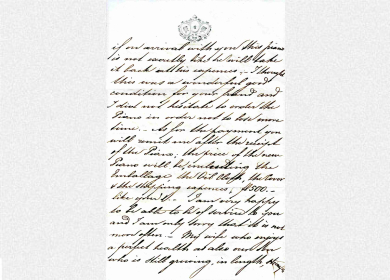 if on arrival with you this piano
is not exactly like he will take
it back at his expences. - I thought
this was a wonderful good
condition for your friend and
I did not hesitate to order the
Piano in order not to lose more
time. - As for the payment you
will remit me after the receipt
of the Piano, the price of the new
Piano will be including the
Emballage the Oil Cloth, the Cover
& the shipping expences, $500.-
like
I am very happy
to be able to be of service to you
and I am only sorry that it is not
more often. - My wife who enjoys
a perfect health as also our
who is still growing, in length